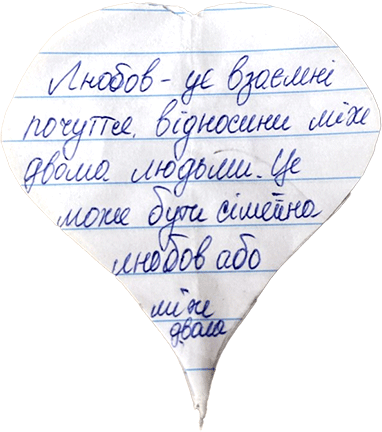 Любов - це взаємні
почуття, відносини між
двома людьми. Це
може бути сімейна
любов або
між
двома